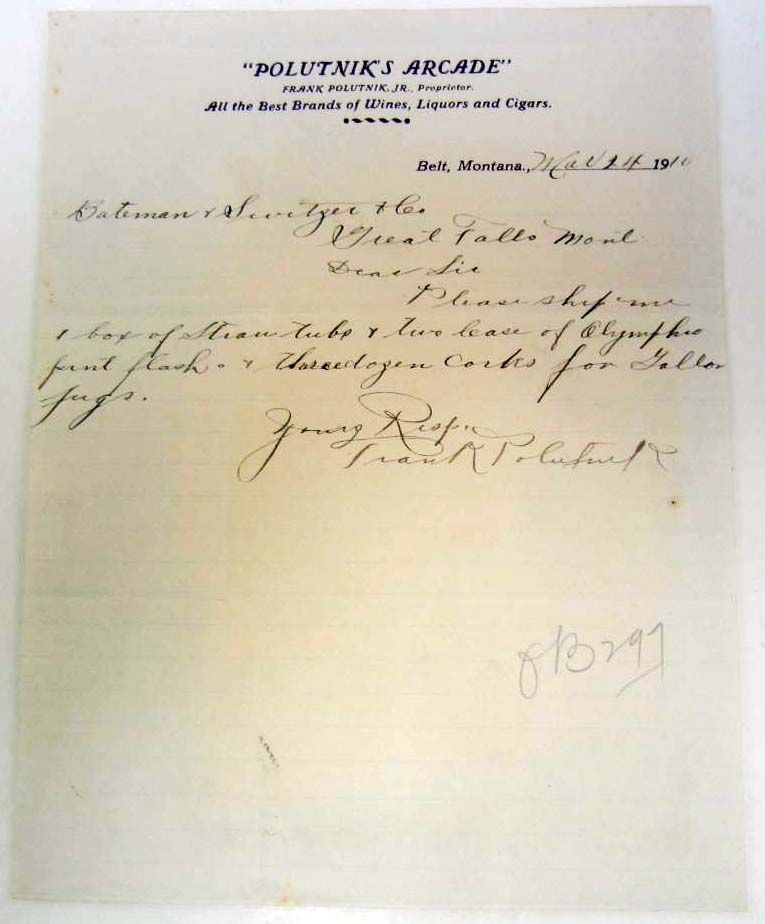 "POLUTNIK'S ARCADE"
FRANK POLUTNIK, JR., Proprietor.
All the Best Brands of Wines, Liquors and Cigars.
Belt, Montana., Mar 14 1910
Bateman & Switzer & Co
Great Falls Mont
Dear Sir
Please ship me
1 box of Straw tubs & two Case of Olymphic
pint flash. & three dozen Corks for Gallon
jugs.
Yours Resp.
Frank Polutnik
B 297